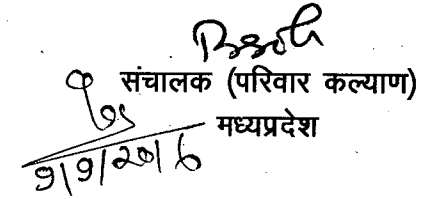 संचालक (परिवार कल्याण)
मध्यप्रदेश
9/9/2016